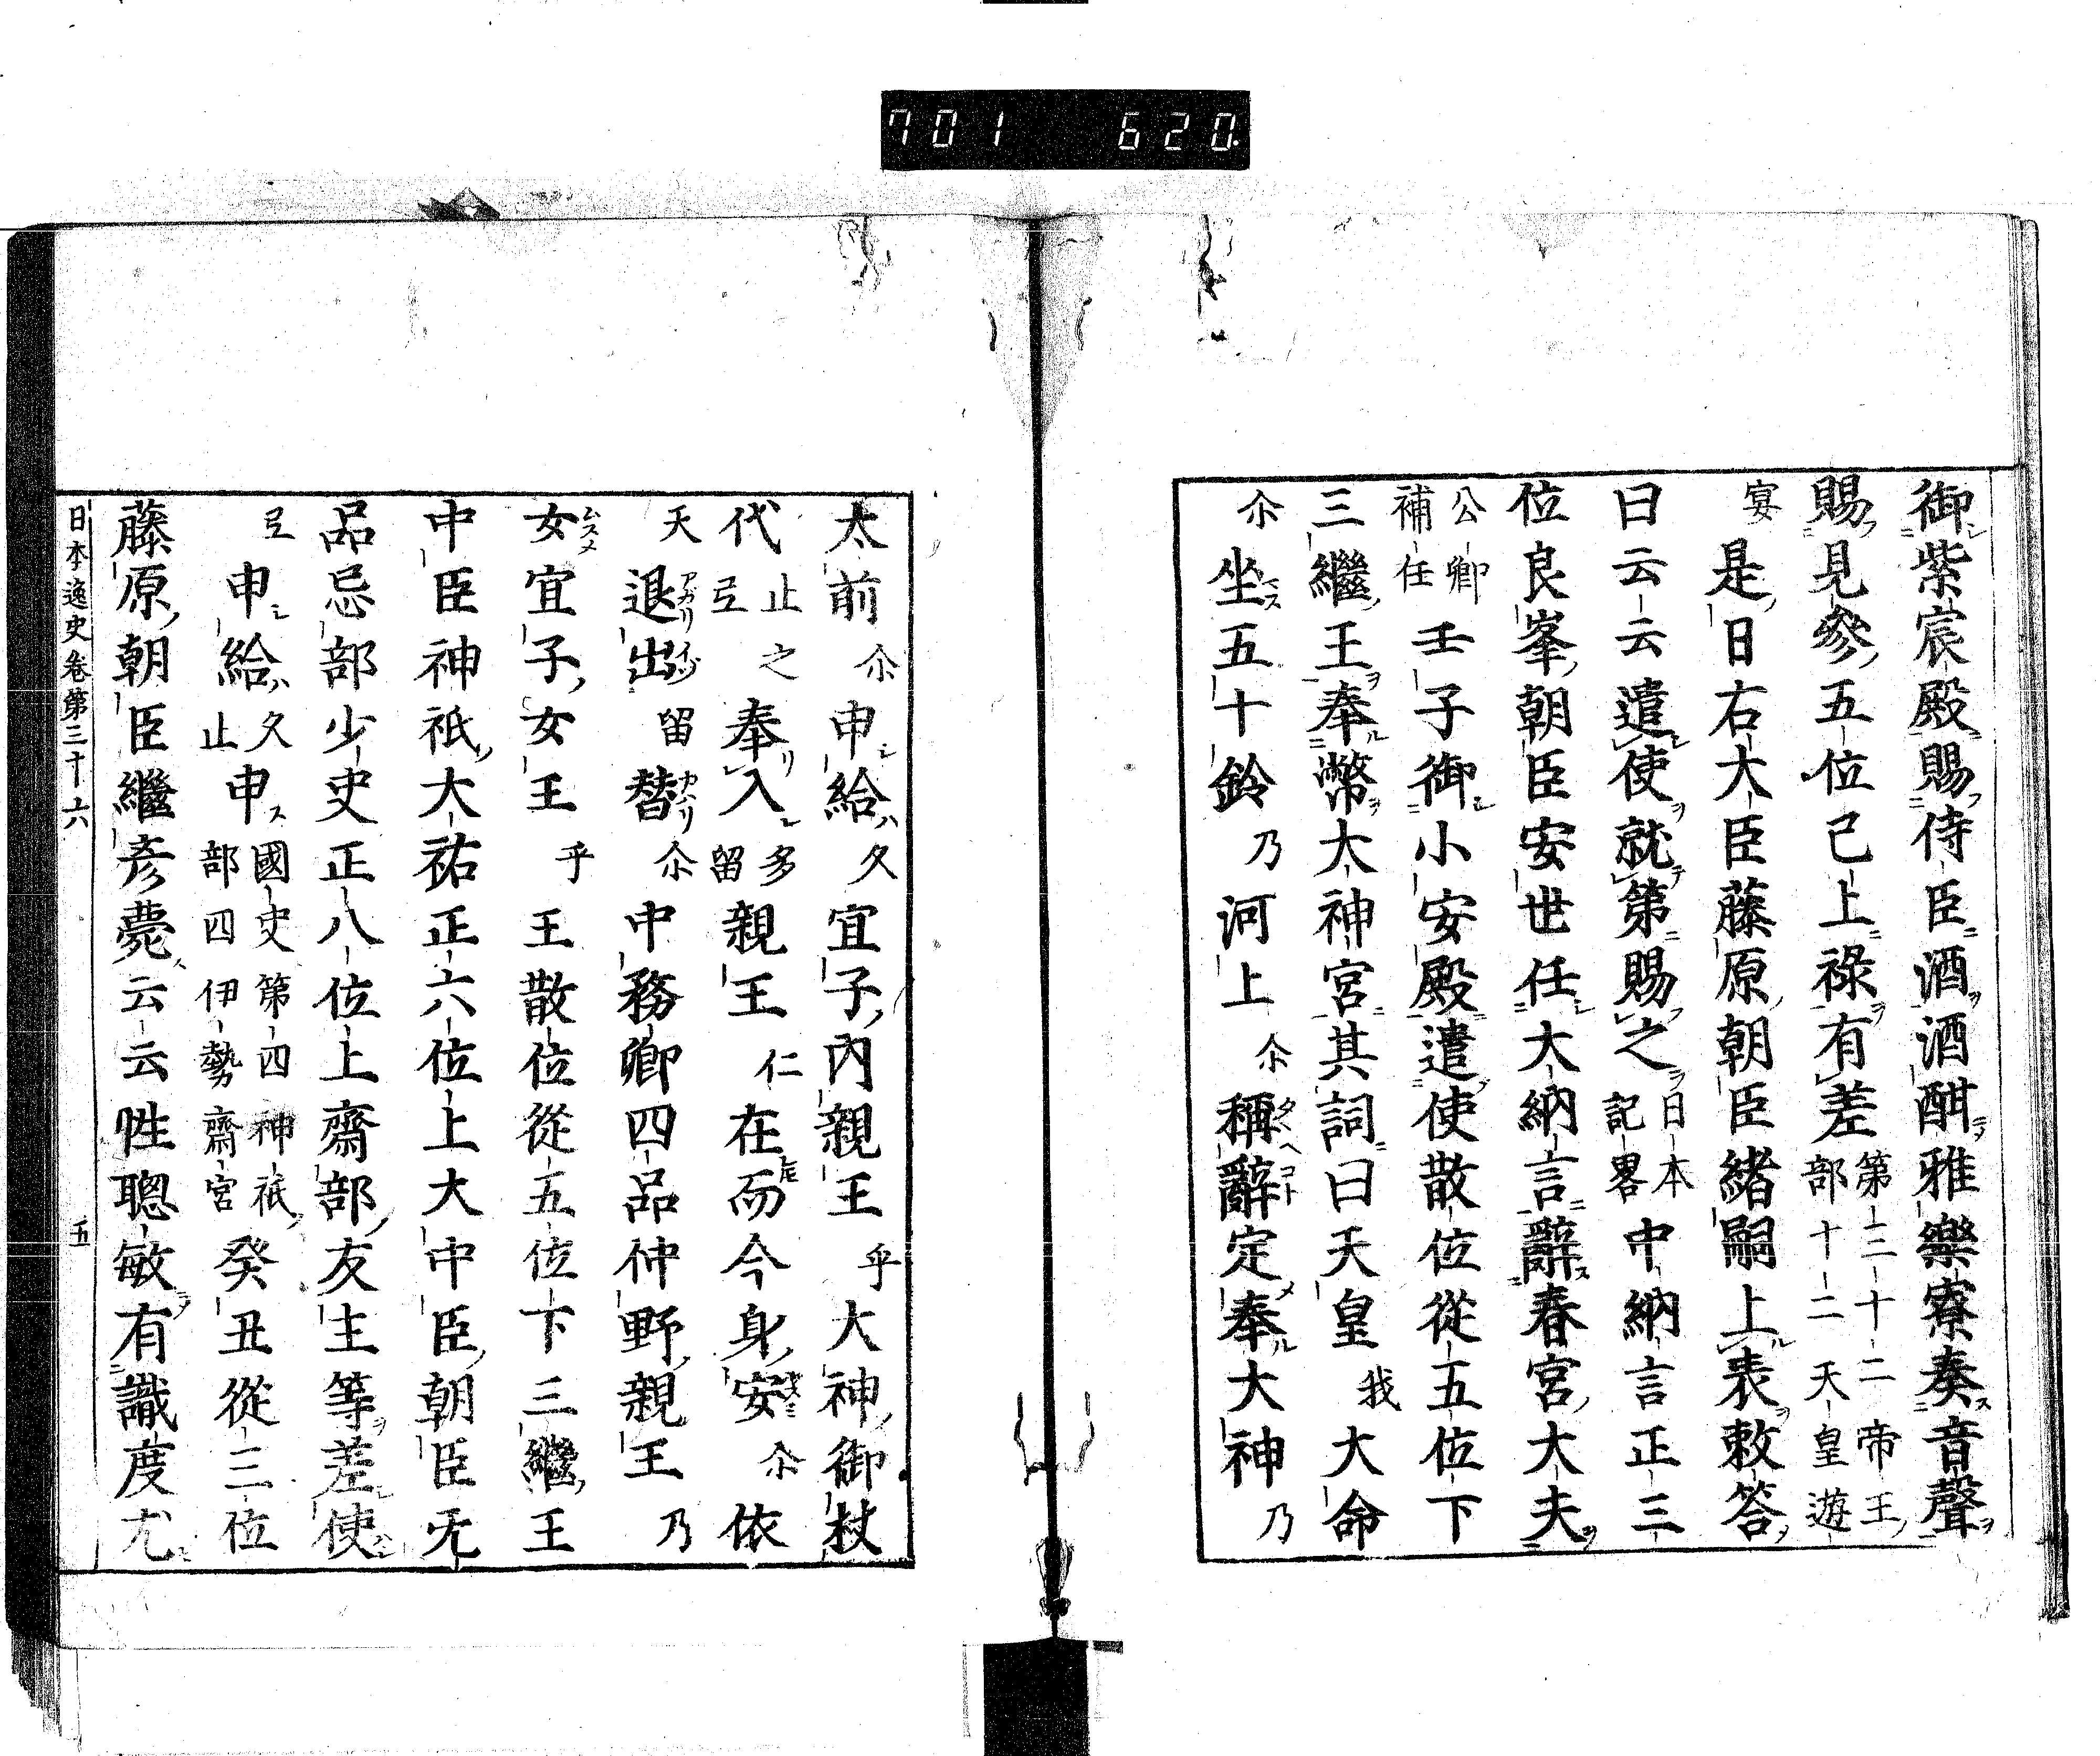 701 620.
御紫宸殿賜侍臣酒酒酣雅樂寮奏音聲
賜見參五位已上祿有差第三十二帝王部十二天皇遊
宴是日右大臣藤原朝臣緒嗣上表敕答
曰云云遣使就第賜之日本記畧中納言正三
位良峯朝臣安世任大納言辭春宮大夫
公卿補任壬子御小安殿遣使散位從五位下
三繼王奉幣大神宮其詞曰天皇我大命
尒坐五十鈴乃河上尒稱辭定奉大神乃
太前尒申給久宜子內親王乎大神御杖
代止之弖奉入多留親王仁在而今身安尒依
天退出留替尒中務卿四品仲野親王乃
女宜子女王乎王散位從五位下三繼王
中臣神祇大祐正六位上大中臣朝臣无
品忌部少史正八位上齋部友主等差使
弖申給久止申國史第四神祇部四伊勢齋宮癸丑從三位
藤原朝臣繼彥薨云云性聰敏有識度尤
日本逸史卷第三十六 五